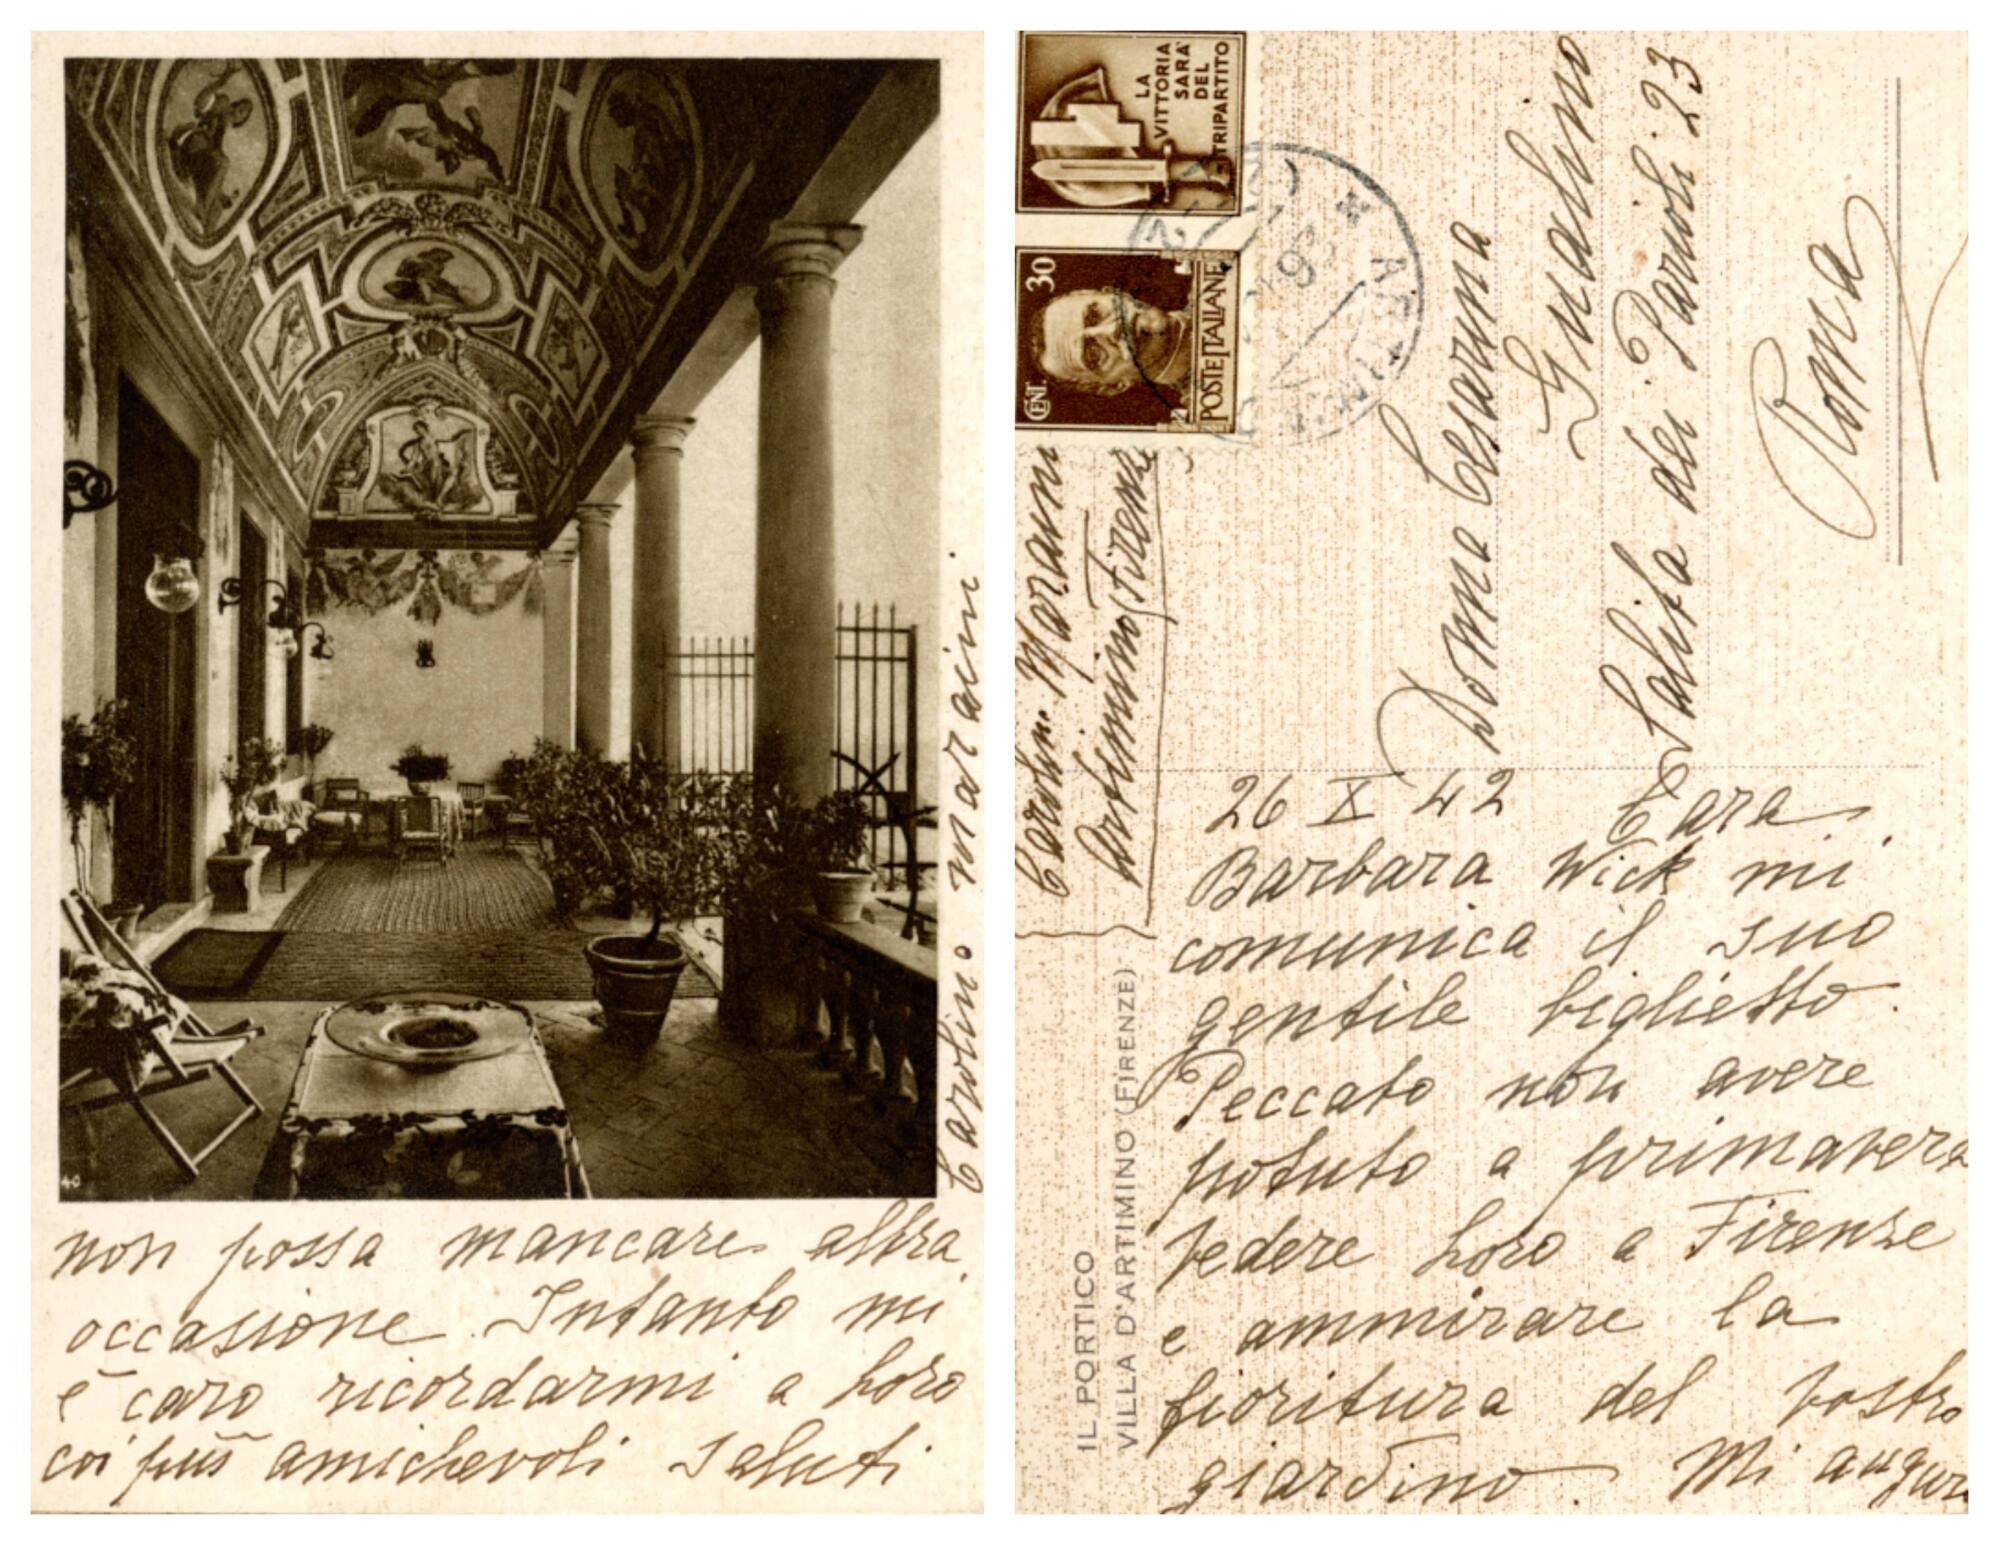 40
non possa mancare altra
occasione. Intanto mi
è caro ricordarmi a Loro
coi più amichevoli saluti
Carolino Maraini
LA
VITTORIA
SARA'
DEL
TRIPARTITO
CENT. 30
POSTE ITALIANE
ARTIMIN
Carolino Maraini
Artimino (Firenze
Donna Cesarina
Gualino
Salita dei Parioli 23
Roma
IL PORTICO
VILLA D'ARTIMINO (FIRENZE)
26 X 42 Cara
Barbara Wick mi
comunica il suo
gentile biglietto.
Peccato non avere
potuto a primavera
vedere Loro a Firenze
e ammirare la
fioritura del vostro
giardino. Mi auguro